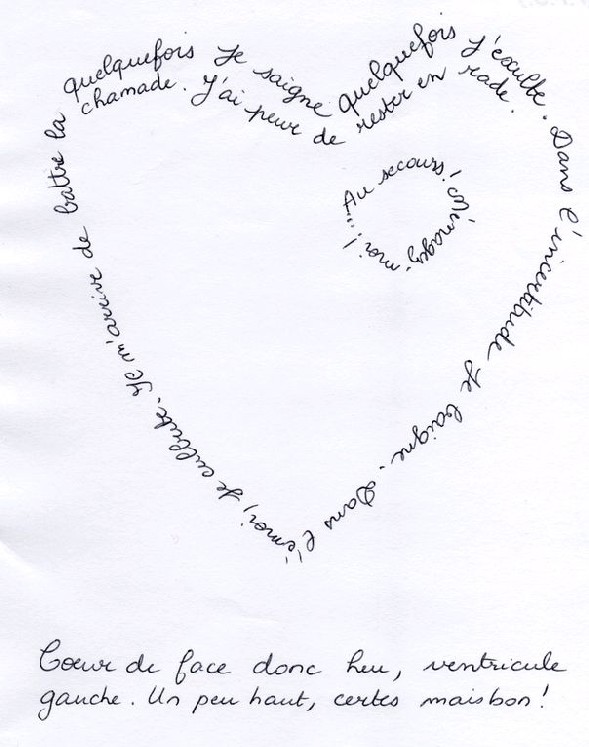 quelquefois je saigne quelquefois j'exulte. Dans l'incertitude je baigne. Dans l'émoi, je culbute. Je m'arrive de battre la
chamade. J'ai peur de rester en rade.
Au secours! moi!...
Cœur de face donc heu, ventricule
gauche. Un peu haut, certes mais bon !